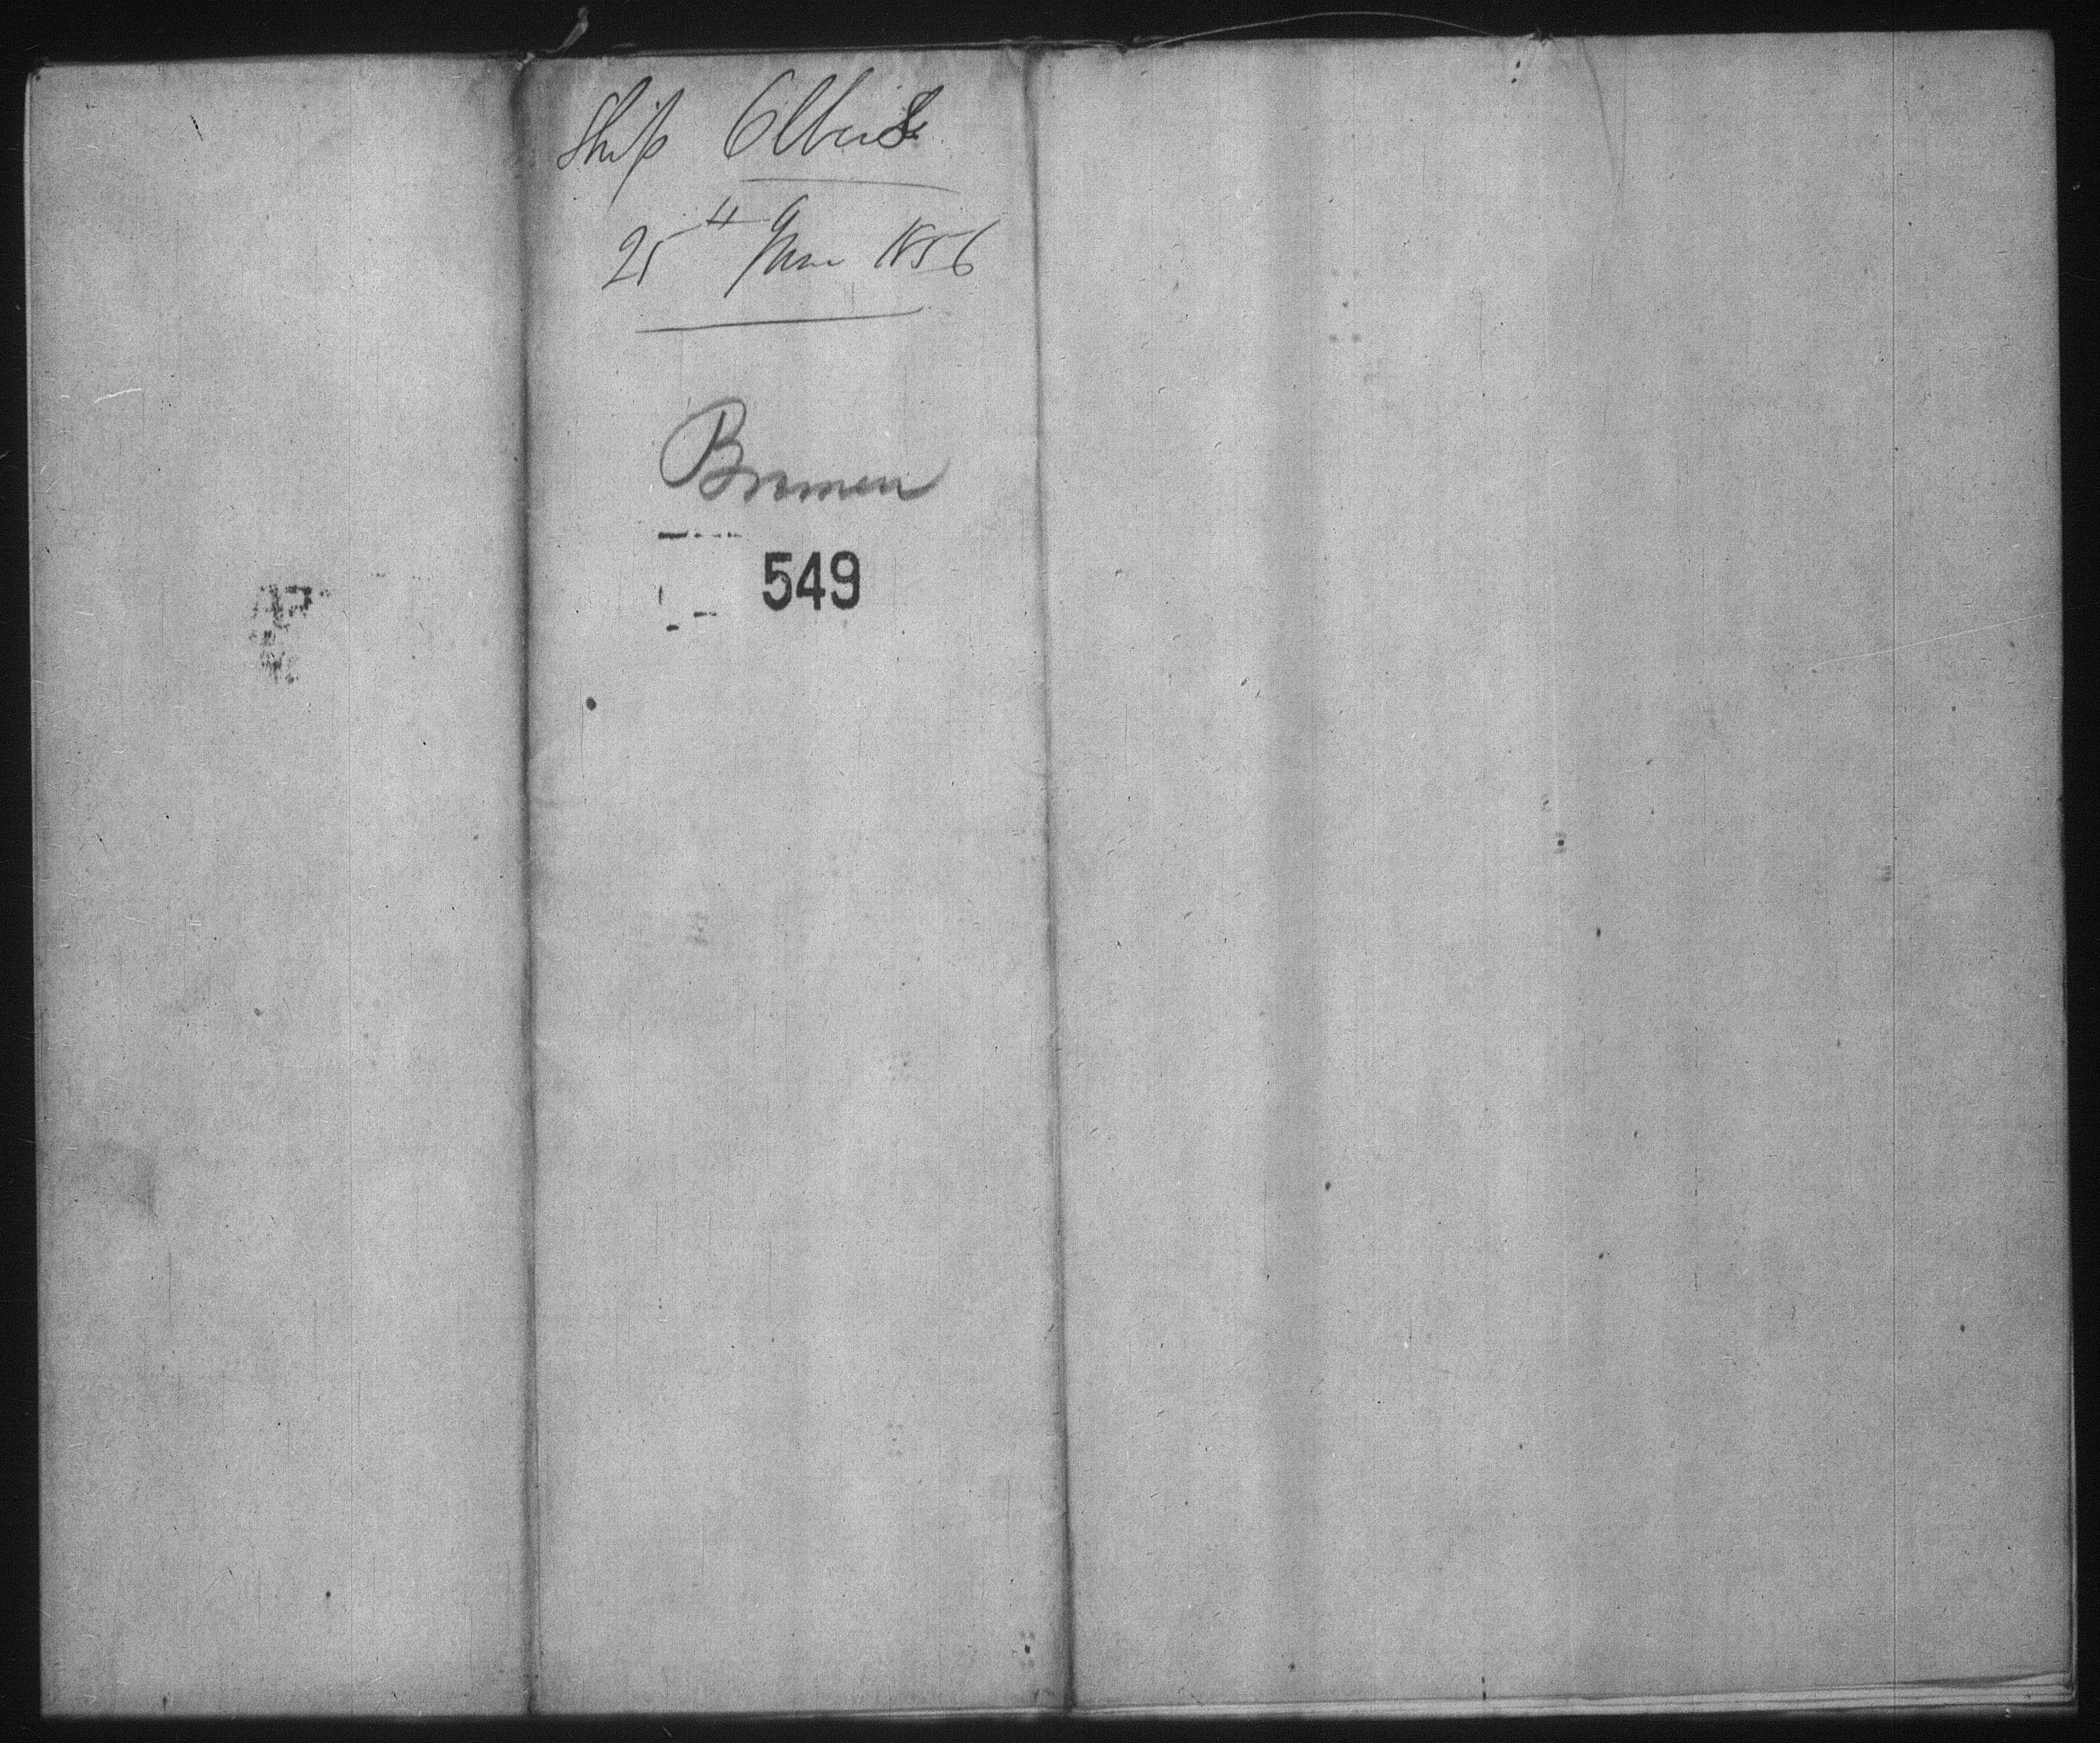 Ship Olbers
25th June 1856
Bremen
549